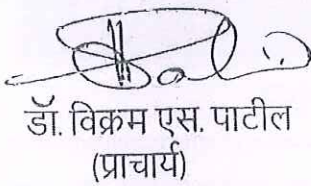 डॉ. विक्रम एस. पाटील
(प्राचार्य)